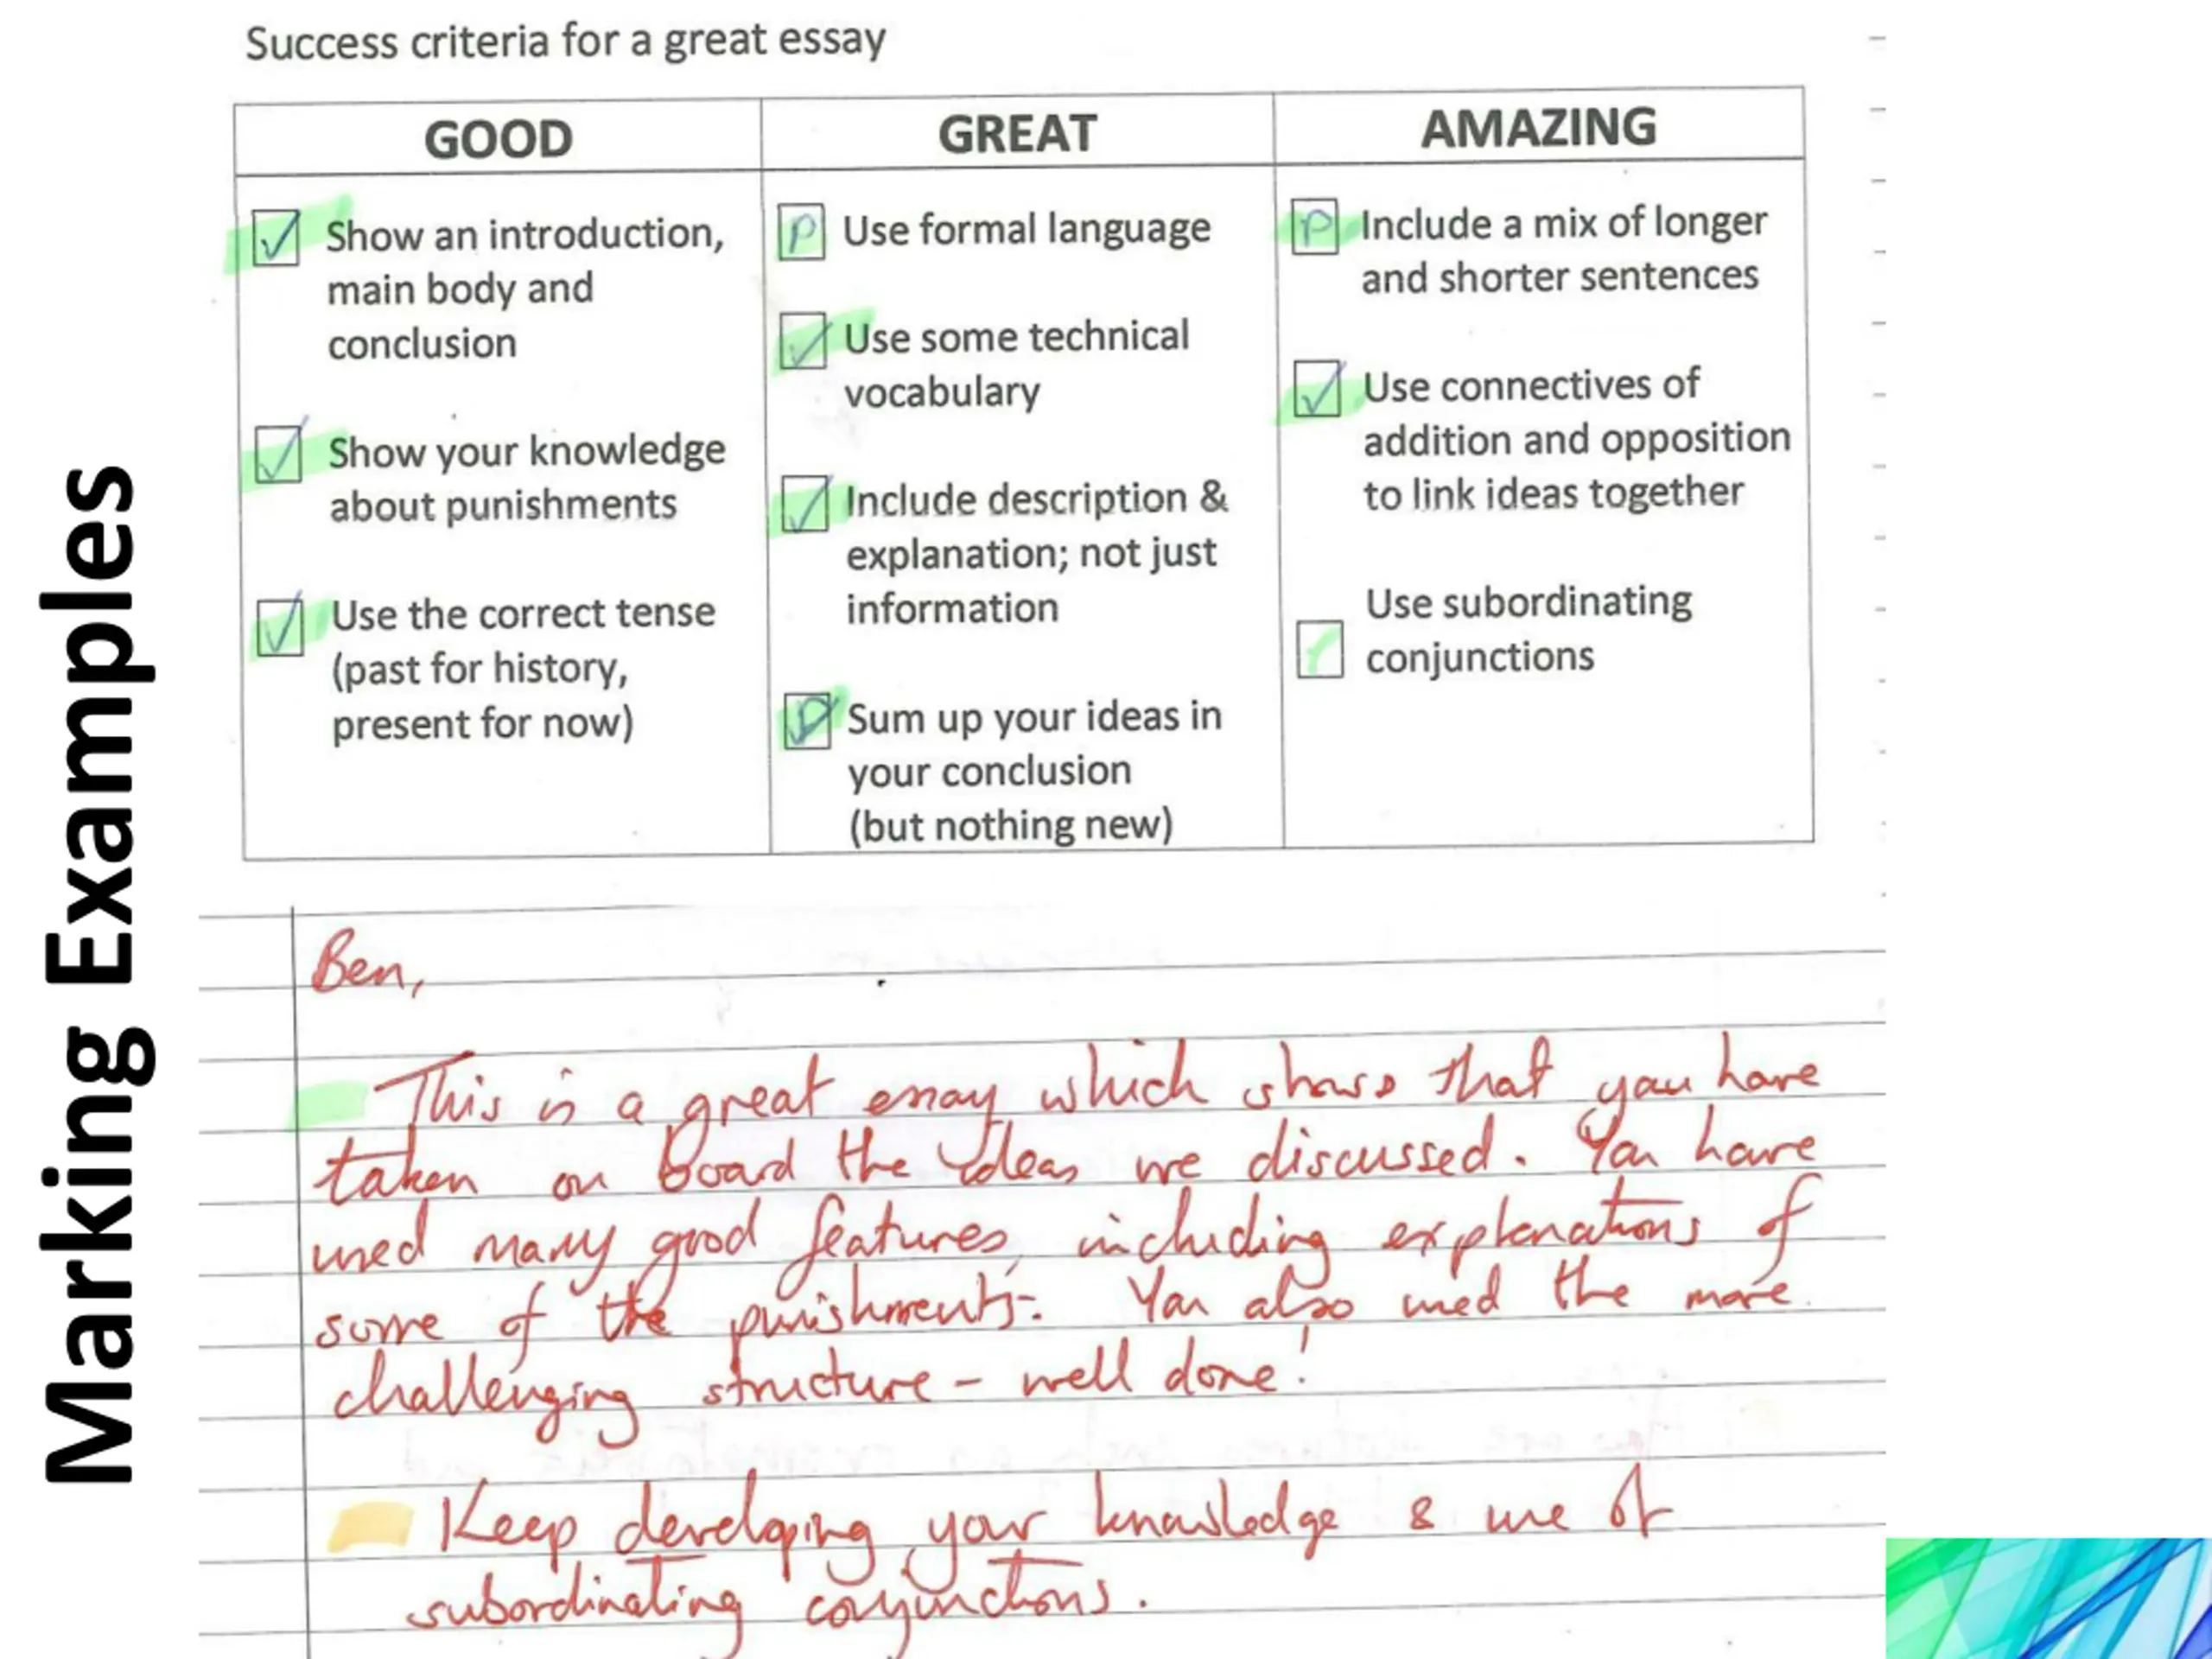 Marking Examples
Success criteria for a great essay
GOOD
Show an introduction,
main body and
conclusion
Show your knowledge
about punishments
Use the correct tense
(past for history,
present for now)
GREAT
P Use formal language
Use some technical
vocabulary
Include description &
explanation; not just
information
P Sum up your ideas in
your conclusion
(but nothing new)
AMAZING
P Include a mix of longer
and shorter sentences
Use connectives of
addition and opposition
to link ideas together
Use subordinating
conjunctions
Ben,
This is a great essay which shows that you have
taken on board the ideas we discussed. You have
used many good features, including explanations of
some of the punishments. You also used the more
challenging structure - well done!
Keep developing your knowledge & use of
subordinating conjunctions.